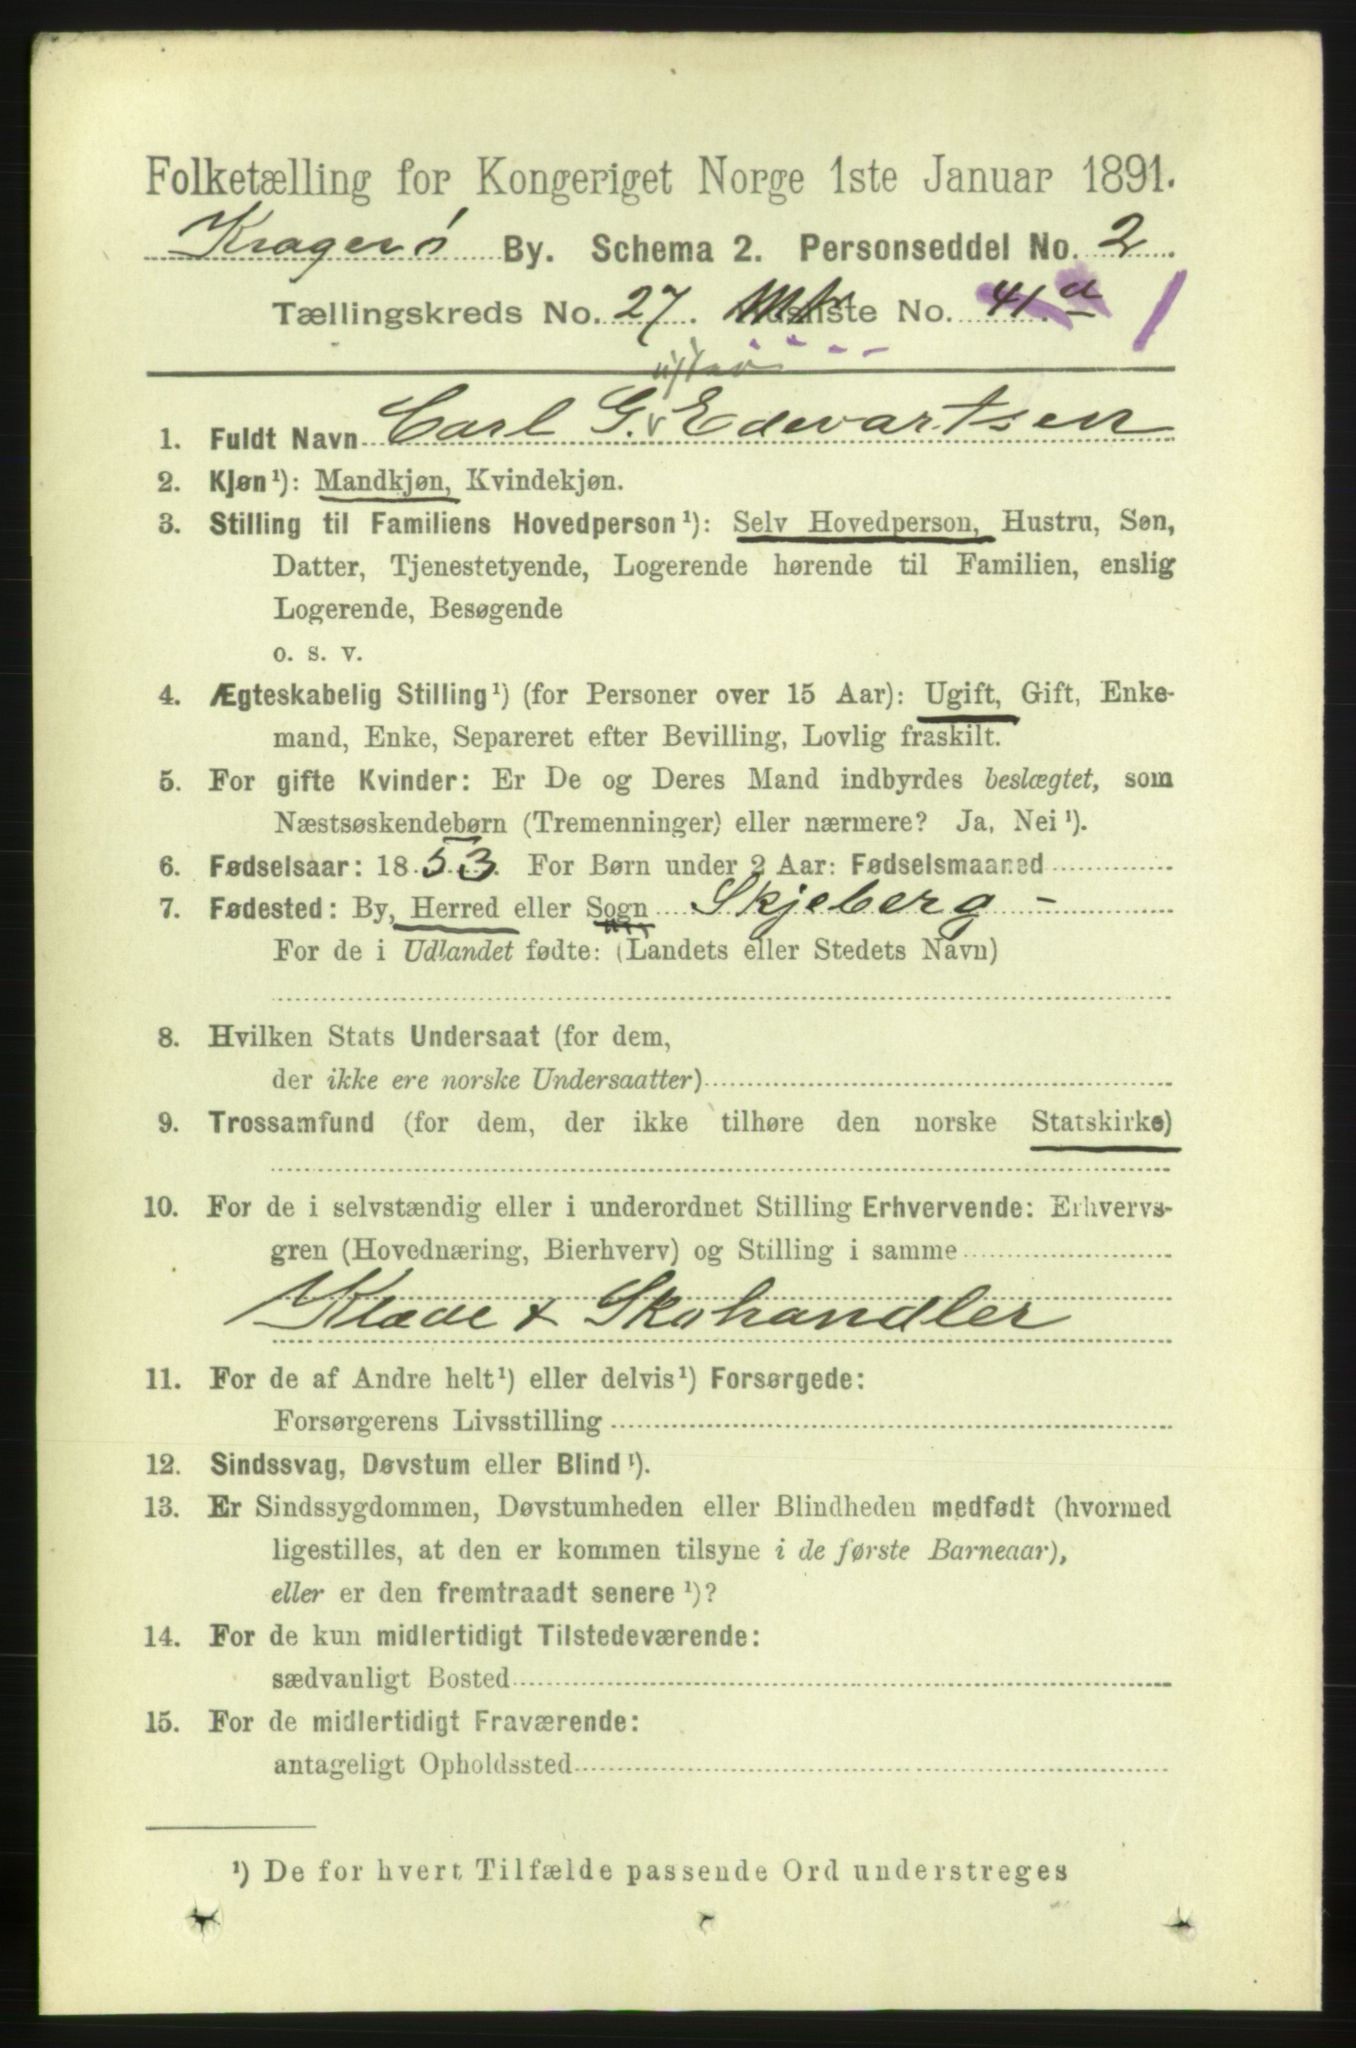 Folketælling for Kongeriget Norge 1ste Januar 1891.
Kragerø By. Schema 2. Personseddel No. 2
Tællingskreds No. 27. No. 41 a 1
1. Fuldt Navn Carl G. Edevartsen
2. Kjøn¹): Mandkjøn, Kvindekjøn.
3. Stilling til Familiens Hovedperson¹): Selv Hovedperson, Hustru, Søn,
Datter, Tjenestetyende, Logerende hørende til Familien, enslig
Logerende, Besøgende
o. s. v.
4. Ægteskabelig Stilling¹) (for Personer over 15 Aar): Ugift, Gift, Enke-
mand, Enke, Separeret efter Bevilling, Lovlig fraskilt.
5. For gifte Kvinder: Er De og Deres Mand indbyrdes beslægtet, som
Næstsøskendebørn (Tremenninger) eller nærmere? Ja, Nei¹).
6. Fødselsaar: 1853. For Børn under 2 Aar: Fødselsmaaned
7. Fødested: By, Herred eller Sogn Skjeberg -
For de i Udlandet fødte: (Landets eller Stedets Navn)
8. Hvilken Stats Undersaat (for dem,
der ikke ere norske Undersaatter)
9. Trossamfund (for dem, der ikke tilhøre den norske Statskirke)
10. For de i selvstændig eller i underordnet Stilling Erhvervende: Erhvervs-
gren (Hovednæring, Bierhverv) og Stilling i samme
Klæde & Skohandler
11. For de af Andre helt¹) eller delvis¹) Forsørgede:
Forsørgerens Livsstilling
12. Sindssvag, Døvstum eller Blind¹).
13. Er Sindssygdommen, Døvstumheden eller Blindheden medfødt (hvormed
ligestilles, at den er kommen tilsyne i de første Barneaar),
eller er den fremtraadt senere¹)?
14. For de kun midlertidigt Tilstedeværende:
sædvanligt Bosted
15. For de midlertidigt Fraværende:
antageligt Opholdssted
¹) De for hvert Tilfælde passende Ord understreges